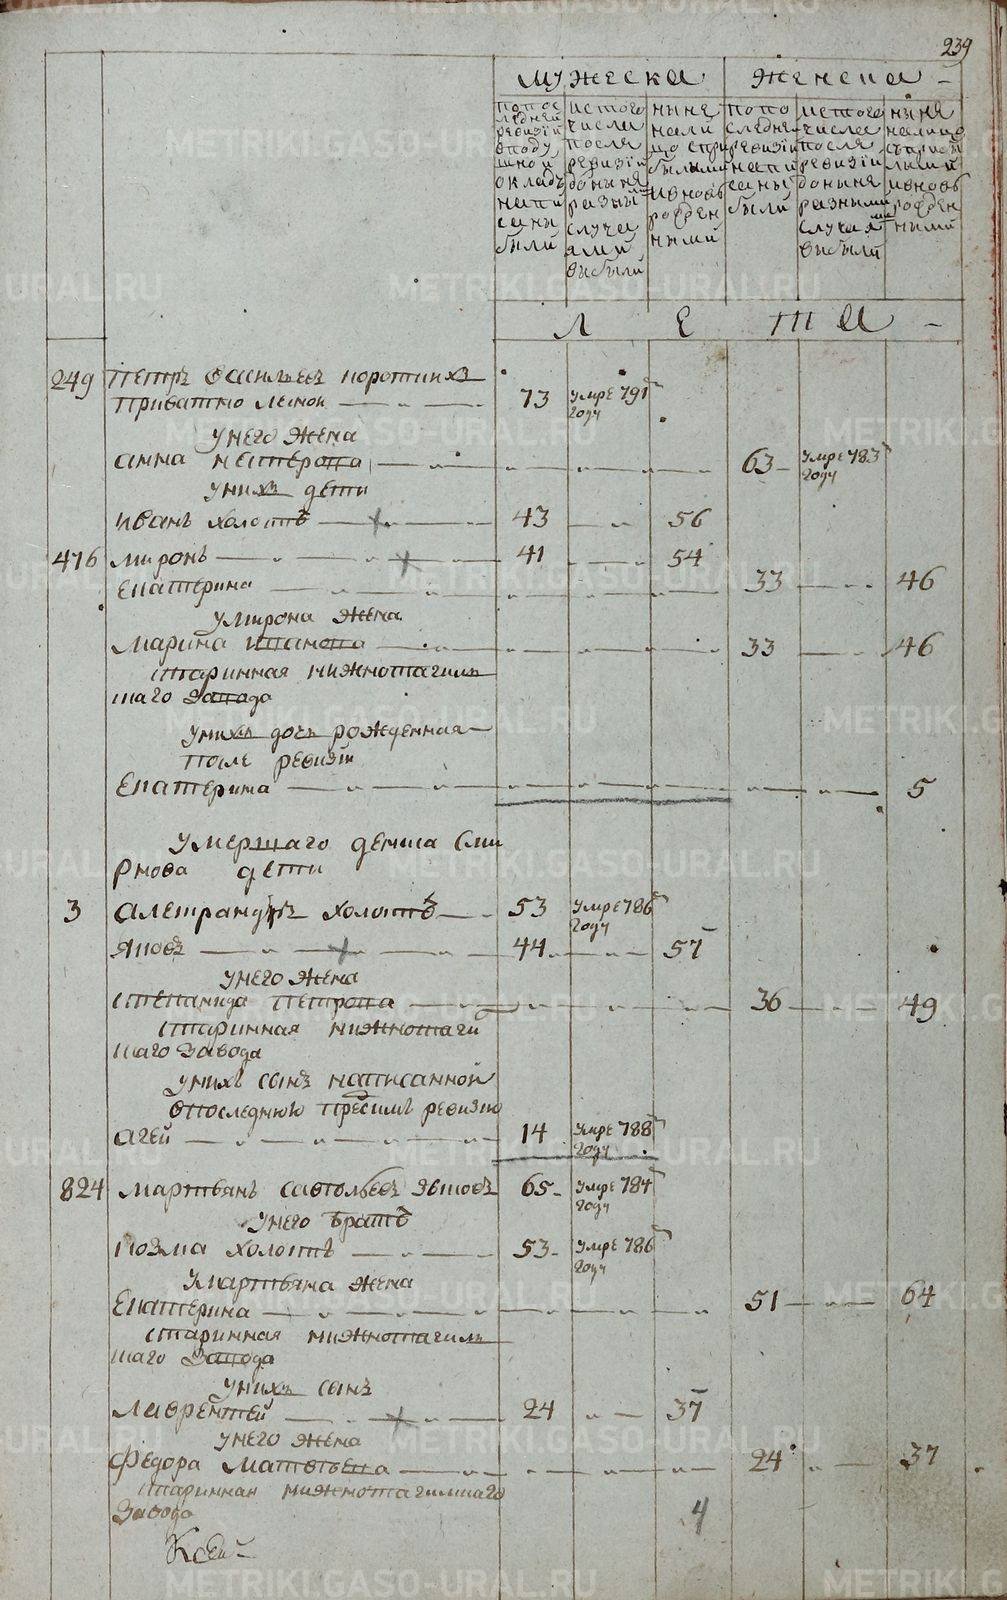 239
мужеска женска
попос ледней ревизiи вподу шной окладъ напи саны были
истого числа после ревизiи доныне разны ми случа ями выбыли
ныне нали цо спри былыми ивновь рожден ными
попо следне ревизiи напи саны были
истого числа после ревизiи доныне разными случая ми выбыли
ныне налицо съприбы лыми ивновь рожден ными
Л Е Т А
249 Петръ Васильевъ короткихъ
приватно ленои 73 умре 791 году
Унего жена
анна нестерова 63 умре 783 году
Унихъ дети
иванъ холостъ 43 56
476 миронъ 41 54
Екатерина 33 46
Умирона жена
марина иванова 33 46
старинная нижнотагиль
скаго завода
Унихъ дочь рожденная
после ревизiи
Екатерина 5
Умершаго дениса сми
рнова дети
3 александръ холостъ 53 умре 786 году
яковъ 44 57
Унего жена
степанида петрова 36 49
старинная нижнотаги
скаго завода
Унихъ сынъ написанной
впоследнюю пресимъ ревизию
агей 14 умре 788 году
824 мартьянъ савельевъ 65 умре 784 году
Унего братъ
козма холостъ 53 умре 786 году
Умартьяна жена
Екатерина 51 64
старинная нижнотагиль
скаго завода
Унихъ сынъ
лаврентей 24 37
Унего жена
федора матвеева 24 37
старинная нижнотагилскаго
завода
4
METRIKI.GASO-URAL.RU